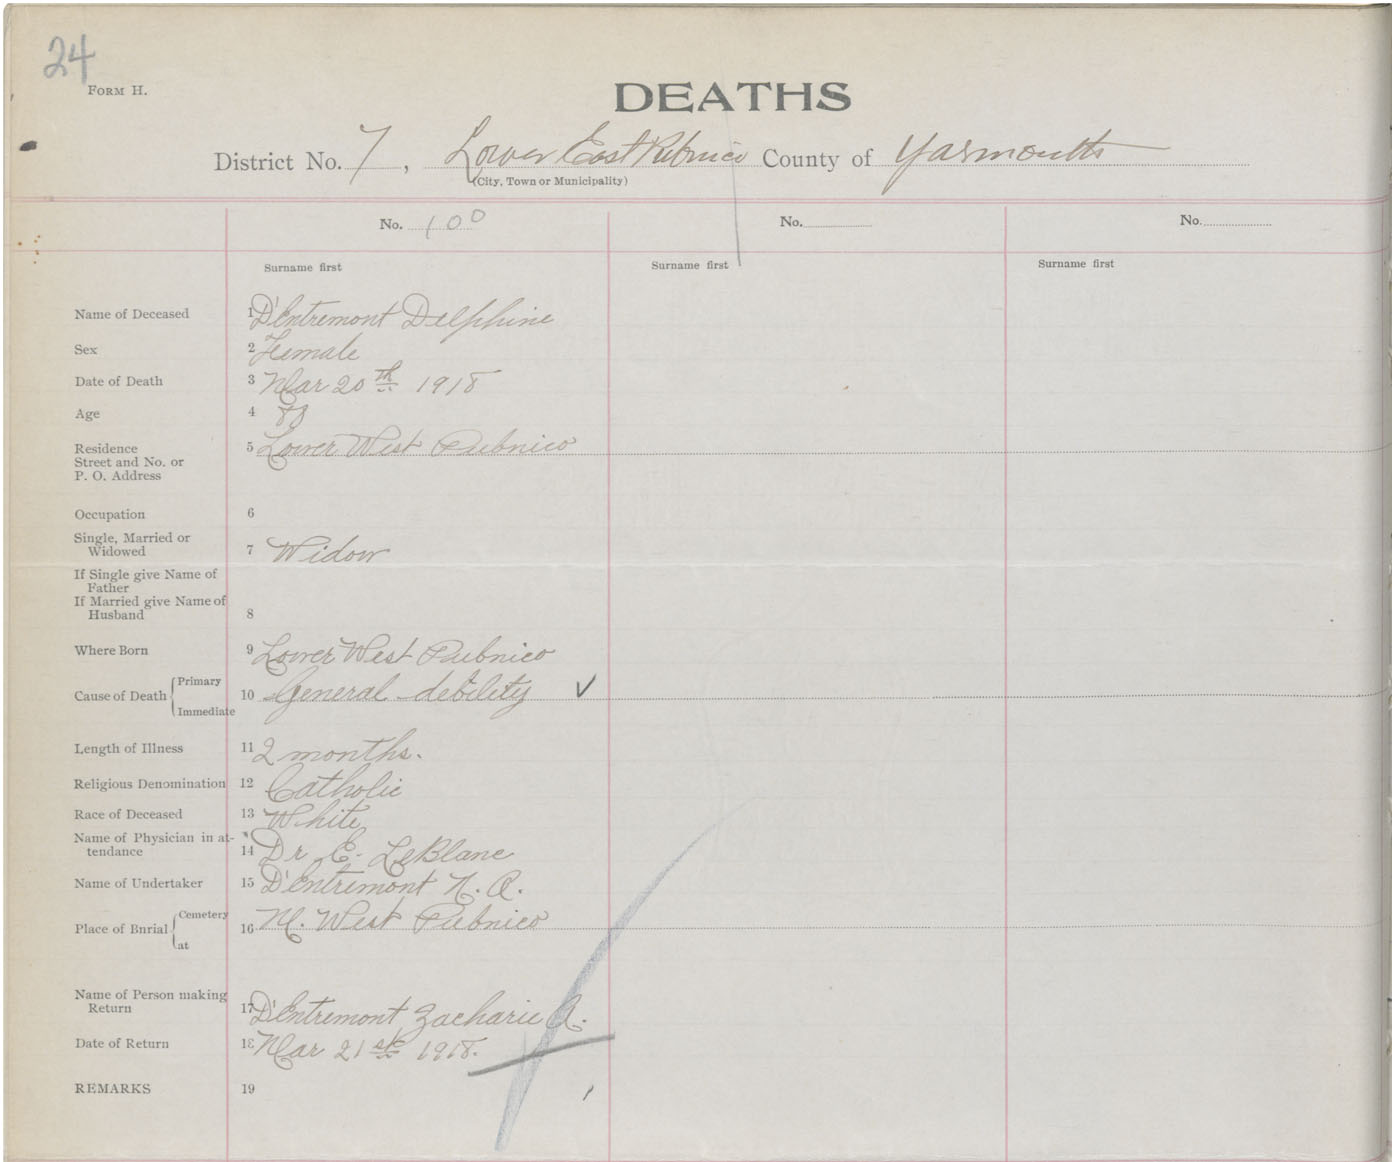 24
FORM H.
DEATHS
District No. 7, Lower East Pubnico County of Yarmouth
(City, Town or Municipality)
No. 100 No. No.
Surname first Surname first Surname first
Name of Deceased 1 D'Entremont Delphine
Sex 2 Female
Date of Death 3 Mar 20th 1918
Age 4 88
Residence 5 Lower West Pubnico
Street and No. or
P. O. Address
Occupation 6
Single, Married or
Widowed 7 Widow
If Single give Name of
Father
If Married give Name of
Husband 8
Where Born 9 Lower West Pubnico
Primary
Cause of Death 10 General debility ✓
Immediate
Length of Illness 11 2 months.
Religious Denomination 12 Catholic
Race of Deceased 13 White
Name of Physician in at-
tendance 14 Dr E. LeBlanc
Name of Undertaker 15 D'Entremont N. A.
Cemetery
Place of Burial 16 M. West Pubnico
at
Name of Person making
Return 17 D'Entremont Zacharie A.
Date of Return 18 Mar 21st 1918.
REMARKS 19